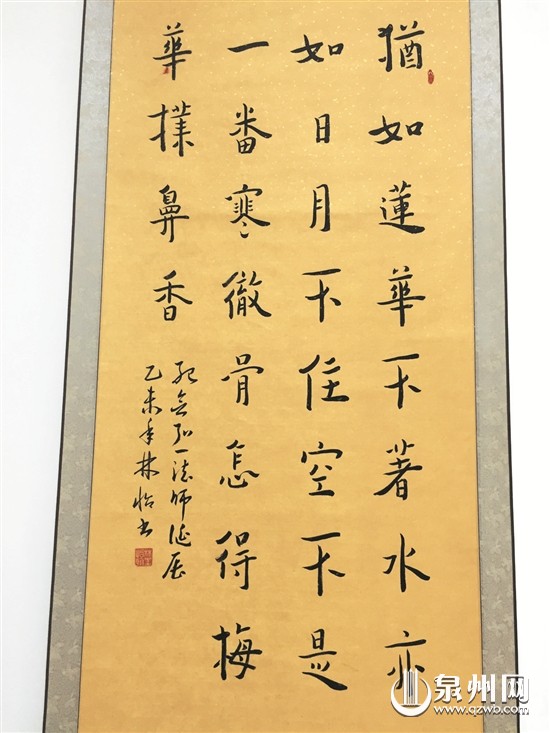 猶如蓮華不著水亦
如日月不住空不是
一番寒徹骨怎得梅
華撲鼻香
紀念弘一法師誕辰
乙未年林怡書
泉州网
www.qzwb.com